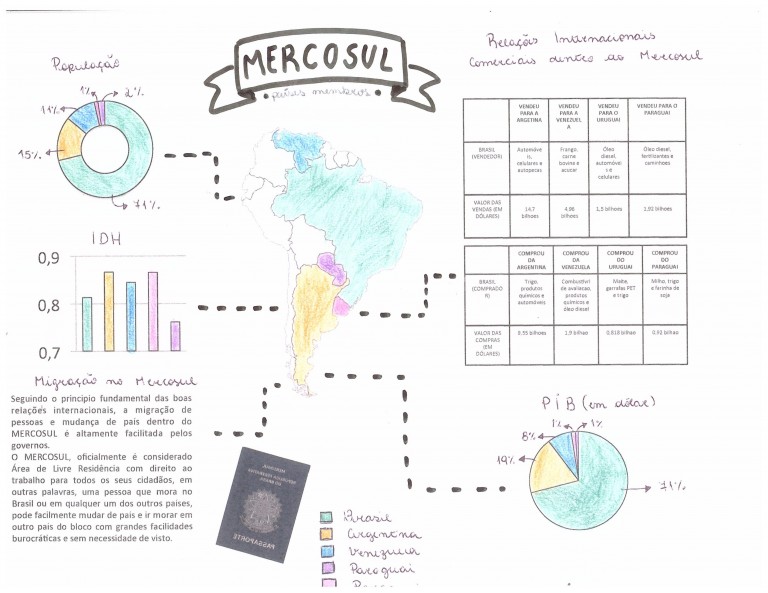 MERCOSUL
países membros
População
1%
2%
11%
15%
71%
IDH
0,9
0,8
0,7
Migração no Mercosul
Seguindo o principio fundamental das boas
relações internacionais, a migração de
pessoas e mudança de país dentro do
MERCOSUL é altamente facilitada pelos
governos.
O MERCOSUL, oficialmente é considerado
Área de Livre Residência com direito ao
trabalho para todos os seus cidadãos, em
outras palavras, uma pessoa que mora no
Brasil ou em qualquer um dos outros países,
pode facilmente mudar de pais e ir morar em
outro pais do bloco com grandes facilidades
burocráticas e sem necessidade de visto.
PASSAPORTE
Brasil
Argentina
Venezuela
Paraguai
Relações Internacionais
Comerciais dentro do Mercosul
VENDEU PARA A ARGETINA
VENDEU PARA A VENEZUELA
VENDEU PARA O URUGUAI
VENDEU PARA O PARAGUAI
BRASIL (VENDEDOR)
Automóveis, celulares e autopecas
Frango, carne bovina e acucar
Óleo diesel, automóveis e celulares
Óleo diesel, fertilizantes e caminhoes
VALOR DAS VENDAS (EM DÓLARES)
14.7 bilhoes
4.96 bilhoes
1,5 bilhoes
1.92 bilhoes
COMPROU DA ARGENTINA
COMPROU DA VENEZUELA
COMPROU DO URUGUAI
COMPROU DO PARAGUAI
BRASIL (COMPRADOR)
Trigo, produtos quimicos e automóveis
Combustivel de avaliacao, produtos químicos e óleo diesel
Malte, garrafas PET e trigo
Milho, trigo e farinha de soja
VALOR DAS COMPRAS (EM DÓLARES)
1,9 bilhao
0.818 bilhao
0.92 bilhao
PIB (em dólar)
1%
1%
8%
19%
71%